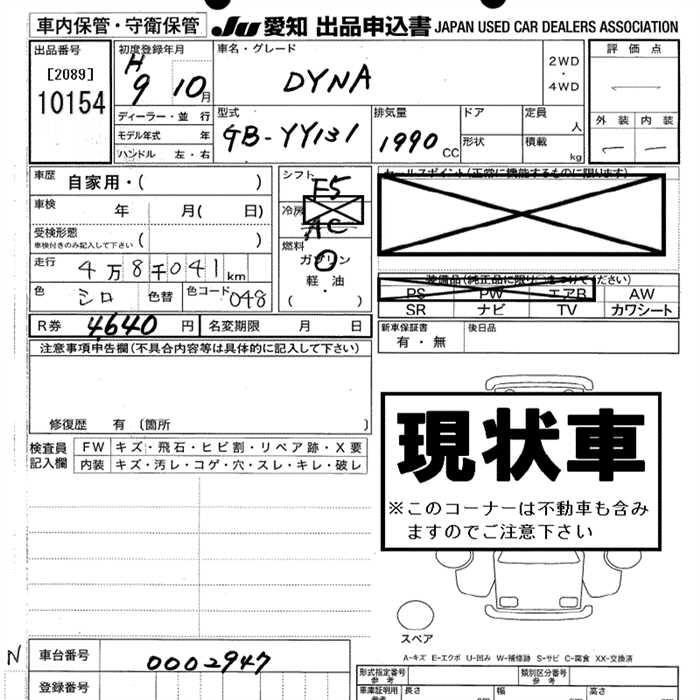 車内保管・守衛保管
JU 愛知 出品申込書 JAPAN USED CAR DEALERS ASSOCIATION
出品番号
[2089]
10154
初度登録年月
H
9 10月
ディーラー・並 行
モデル年式 年
ハンドル 左・右
車名・グレード
DYNA
2WD
・
4WD
型式
GB-YY131
排気量
1990 CC
ドア
形状
定員
人
積載
kg
評 価 点
外 装 内 装
車歴 自家用・( )
車検 年 月( 日)
受検形態
車検付きのみ記入して下さい ( )
走行 4万8千041km
色 シロ 色替 色コード 048
シフト F5
冷房 AC
燃料
ガソリン
軽・油
( ・ )
セールスポイント(正常に機能するものに限ります)
装備品(純正品に限り○をつけてください)
PS PW エアB AW
SR ナビ TV カワシート
R券 4640 円 名変期限 月 日
新車保証書
有・無
後日品
注意事項申告欄(不具合内容等は具体的に記入して下さい)
修復歴 有 〔箇所 〕
検査員
記入欄
FW キズ・飛石・ヒビ割・リペア跡・X要
内装 キズ・汚レ・コゲ・穴・スレ・キレ・破レ
現状車
※このコーナーは不動車も含み
ますのでご注意下さい
スペア
A-キズ E-エクボ U-凹み W-補修跡 S-サビ C-腐食 XX-交換済
N 車台番号 0002947
登録番号
形式指定番号
参 考
類別区分番号
参 考
車庫証明用
参 考
長さ 幅 高さ